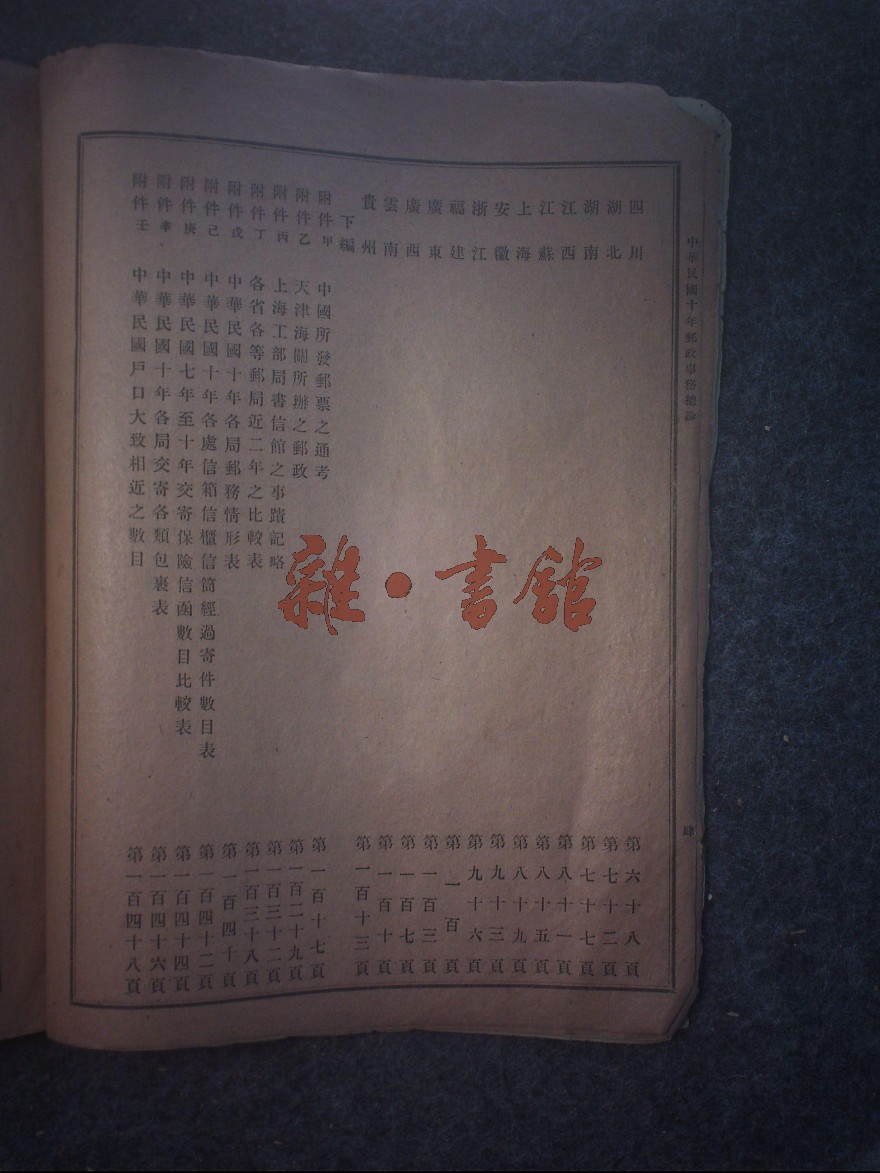 中華民國十年郵政事務總論
肆
四川 第六十八頁
湖北 第七十二頁
湖南 第七十七頁
江西 第八十一頁
江蘇 第八十五頁
上海 第八十九頁
安徽 第九十三頁
浙江 第九十六頁
福建 第一百頁
廣東 第一百三頁
廣西 第一百七頁
雲南 第一百十頁
貴州 第一百十三頁
下編
附件甲 中國所發郵票之通考 第一百十七頁
附件乙 天津海關所辦之郵政 第一百二十九頁
附件丙 上海工部局書信館之事蹟記略 第一百三十二頁
附件丁 各省各等郵局近二年之比較表 第一百三十八頁
附件戊 中華民國十年各局郵務情形表 第一百四十頁
附件己 中華民國十年各處信箱信櫃信筒經過寄件數目表 第一百四十二頁
附件庚 中華民國七年至十年交寄保險信函數目比較表 第一百四十四頁
附件辛 中華民國十年各局交寄各類包裹表 第一百四十六頁
附件壬 中華民國戶口大致相近之數目 第一百四十八頁
雜·書館